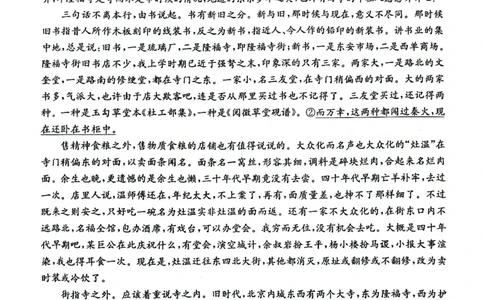 三句话不离本行，由书说起。书有新旧之分。新与旧，那时候与现在，意义不尽同。那时候
旧书指昔人所作木板刻印的线装书，反之为新书，指近人、今人作的铅印的新装书。讲书业的集
中地，总是说：旧书，一是琉璃厂，二是隆福寺，即隆福寺街；新书，一是东安市场，二是西单商场。
隆福寺街旧书店不少，我上学时期已近于强弩之末，印象深的只有三家。两家大，一是路北的文
奎堂，一是路南的修绠堂，都在寺门之东。一家小，名三友堂，在寺门稍偏西的对面。大的两家
书多，气派大，也许由于店大欺客吧，连是否从那里买过书也不记得了。三友堂买过，还记得两
种。一种是玉勾草堂本《杜工部集》，一种是《阅微草堂砚谱》。②而万幸，这两种都闯过秦火，现
在还卧在书柜中。
售精神食粮之外，售物质食粮的店铺也有值得说说的。大众化而名声也大众化的“灶温”在
寺门稍偏东的对面，以卖面条闻名。面条名一窝丝，形容其细，调料是碎块烂肉，合起来名烂肉
面。余生也晚，更遗憾的是余生也懒，三十年代早期竟没有去尝。四十年代早期亡羊补牢，去过
一次。店里人说，温师傅还在，年纪太大，不上案了，再有，面质量差，也抻不了那样细了。不过
既来之则安之，只好吃一碗名为灶温实非灶温的面而返。还有一家不大众化的，在街东口内不
远路北，名福全馆，包办酒席，有戏台，可以办堂会。我穷而无位，没有机会去吃。大概是四十年
代早期吧，某巨公在此庆祝什么，有堂会，演空城计，余叔岩扮王平，杨小楼扮马谡，小报大事渲
染，我也得耳食一次。现在是，灶温迁往东四北大街，其他都消灭，原址或翻修或不翻修，改为卖
时装或冷饮了。
街指寺之外，应该着重说寺之内。旧时代，北京内城东西有两个大寺，东为隆福寺，西为护